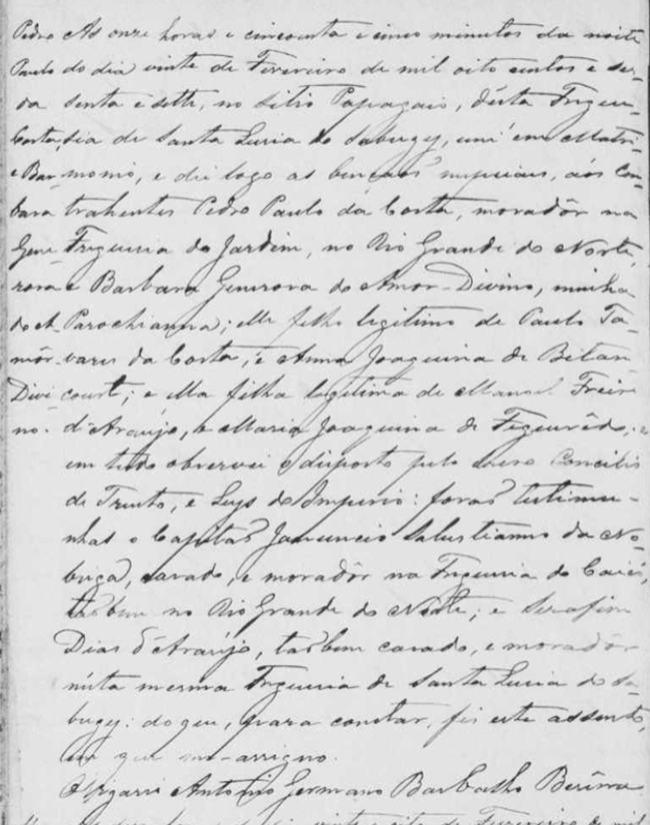 Pedro As onze horas e cincoenta e cinco minutos da noite
Paulo do dia vinte de Fevereiro de mil oito centos e ses-
da senta e sette, no sitio Papagaio, désta Fregue-
Costa, sia de Santa Luzia do Sabugy, uni em Matri-
e Bar- monio, e dei logo as bençaõs nupciaes, aos Con-
bara trahentes Pedro Paulo da Costa, moradôr na
Gene- Freguesia do Jardim, no Rio Grande do Norte,
rosa e Barbara Generosa do Amor-Divino, minha
do A- Parochianna; elle filho legitimo de Paulo Ta-
môr- vares da Costa, e Anna Joaquina de Bitan
Divi- court; e ella filha legitima de Manoel Freire
no. d'Araujo, e Maria Joaquina de Figuerêdo; e
em tudo observei o disposto pelo Sacro Concilio
de Trento, e Leys do Imperio: foraõ testimu-
nhas o Capitaõ Januncio Salustianno da No-
brega, casado, e moradôr na Freguesia do Caicó,
taõbem no Rio Grande do Norte; e Serafim
Dias d'Araujo, taõbem casado, e moradôr
nésta mesma Freguesia de Santa Luzia do Sa-
bugy: do que, para constar, fis este assento,
em que me-assigno.
O Vigario Antonio Germano Barbalho Bezerra
vinte e oito de Fevereiro de mil